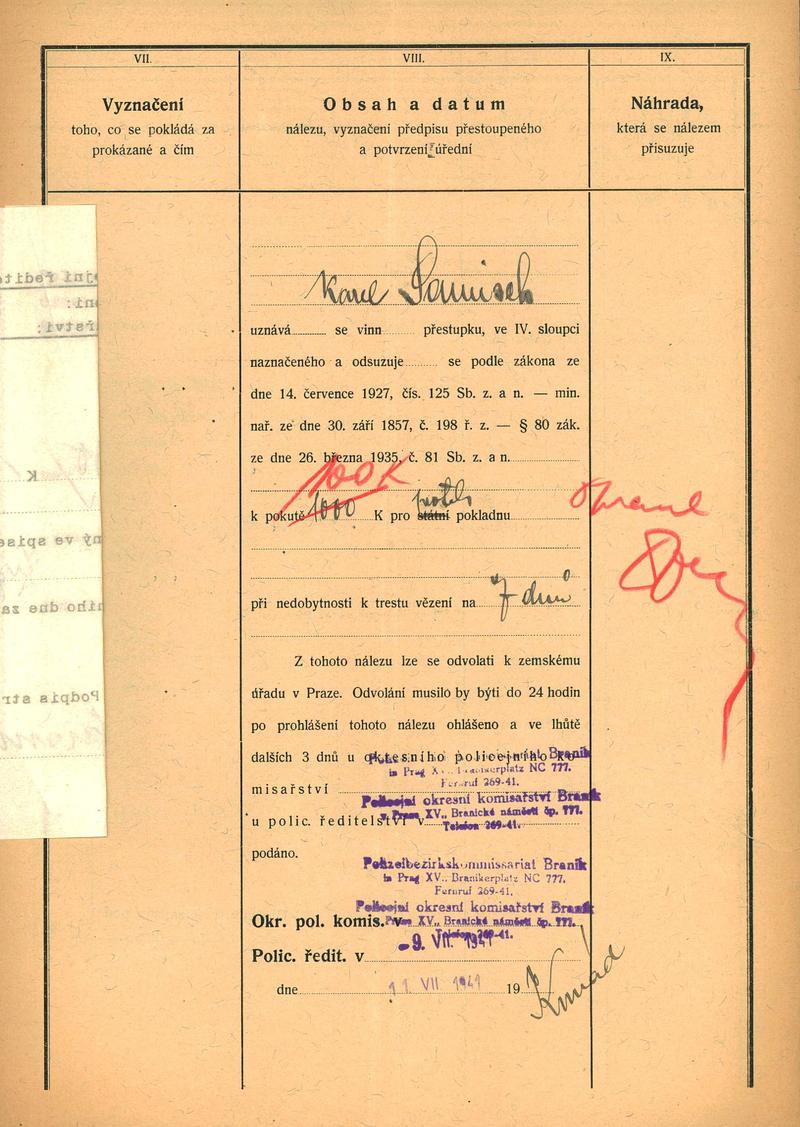 VII.
VIII.
IX.
Vyznačení
toho, co se pokládá za
prokázané a čím
Obsah a datum
nálezu, vyznačení předpisu přestoupeného
a potvrzení úřední
Náhrada,
která se nálezem
přisuzuje
Karel
uznává se vinn přestupku, ve IV. sloupci
naznačeného a odsuzuje se podle zákona ze
dne 14. července 1927, čís. 125 Sb. z. a n. — min.
nař. ze dne 30. září 1857, č. 198 ř. z. — § 80 zák.
ze dne 26. března 1935, č. 81 Sb. z. a n.
100 K
k pokutě 1000 K pro státní pokladnu
při nedobytnosti k trestu vězení na 7 dnů
Z tohoto nálezu lze se odvolati k zemskému
úřadu v Praze. Odvolání musilo by býti do 24 hodin
po prohlášení tohoto nálezu ohlášeno a ve lhůtě
dalších 3 dnů u okresního policejního ko-
Braník
in Prag NC 777.
Fernruf 269-41.
misařství
Policejní okresní komisařství Braník
XV., Branické náměstí čp. 777.
Telefon 269-41.
u polic. ředitelství v
podáno.
Polizeibezirkskommissariat Braník
in Prag XV., Branikerplatz NC 777.
Fernruf 269-41.
Policejní okresní komisařství Braník
Okr. pol. komis. v
XV., Branické náměstí čp. 777.
Telefon 269-41.
-9. VII. 1941
Polic. ředit. v
dne 11 VII 1941 19